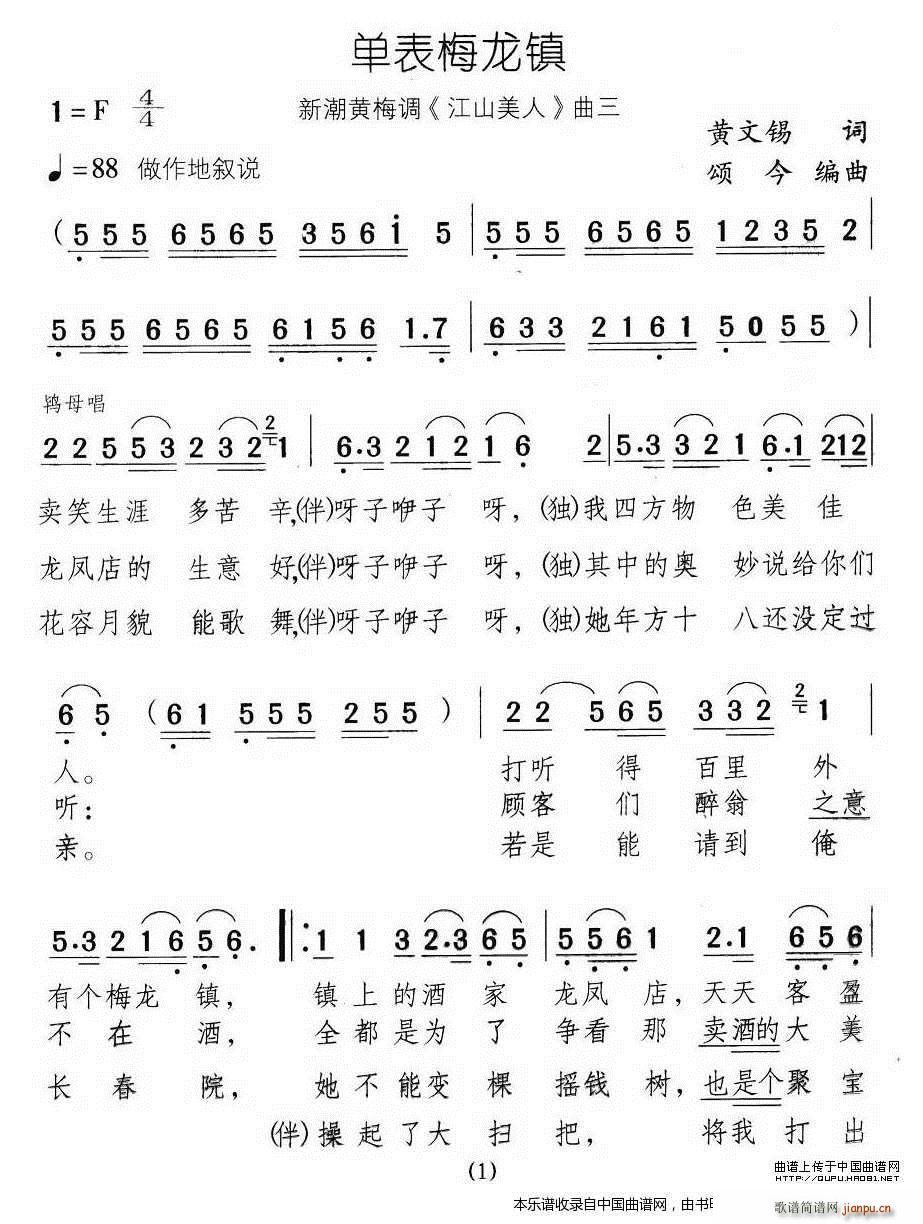 单表梅龙镇
1=F 4/4 新潮黄梅调《江山美人》曲三
黄文锡 词
♩=88 做作地叙说
颂今 编曲
(5 5 5 6 5 6 5 3 5 6 1 5 | 5 5 5 6 5 6 5 1 2 3 5 2 |
5 5 5 6 5 6 5 6 1 5 6 1.7 | 6 3 3 2 1 6 1 5 0 5 5 ) |
鸨母唱
2 2 5 5 3 2 3 2 2 1 | 6.3 2 1 2 1 6 2 | 5.3 3 2 1 6.1 212
卖笑生涯 多苦辛,(伴)呀子咿子 呀,(独)我四方物 色美佳
龙凤店的 生意好,(伴)呀子咿子 呀,(独)其中的奥 妙说给你们
花容月貌 能歌舞,(伴)呀子咿子 呀,(独)她年方十 八还没定过
6 5 (6 1 5 5 5 2 5 5 ) | 2 2 5 6 5 3 3 2 2 1 |
人。 打听 得 百里 外
听: 顾客 们 醉翁 之意
亲。 若是 能 请到 俺
5.3 2 1 6 5 6. ‖: 1 1 3 2.3 6 5 | 5 5 6 1 2.1 6 5 6
有个梅龙 镇, 镇上的酒 家 龙凤 店,天天 客盈
不 在 酒, 全都是为 了 争看 那 卖酒的大 美
长 春 院, 她不能变 棵 摇钱 树,也是个聚 宝
(伴)操起了大 扫 把, 将我 打 出
(1)
曲谱上传于中国曲谱网
→http://QUPU.HAO81.NET
本乐谱收录自中国曲谱网,由书
歌谱简谱网
jianpu.cn